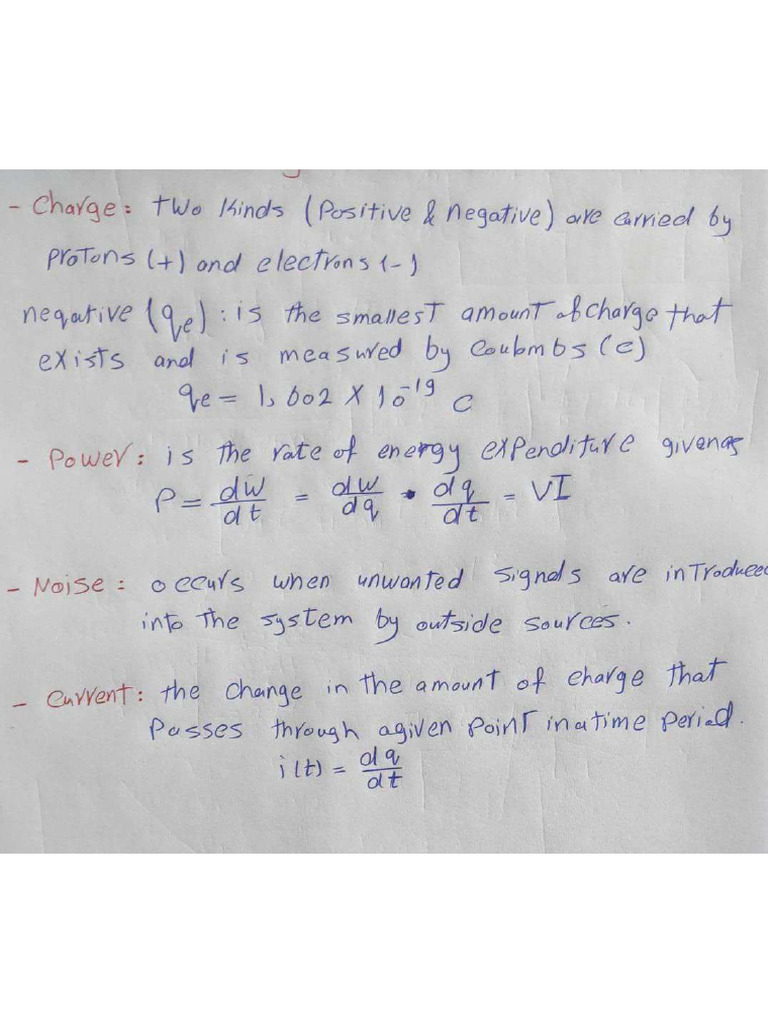 - Charge: two kinds (positive & negative) are carried by
protons (+) and electrons (-)
negative (qe): is the smallest amount of charge that
exists and is measured by Coubmbs (C)
qe = 1,602 X 10^-19 C
- Power: is the rate of energy expenditure given as
P = dw/dt = dw/dq • dq/dt = VI
- Noise: occurs when unwanted signals are introduced
into the system by outside sources.
- Current: the change in the amount of charge that
Passes through a given point in a time period.
i(t) = dq/dt